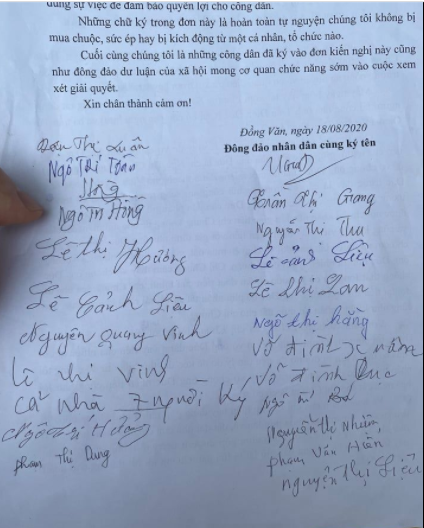 đúng sự việc để đảm bảo quyền lợi cho công dân.
Những chữ ký trong đơn này là hoàn toàn tự nguyện chúng tôi không bị
mua chuộc, sức ép hay bị kích động từ một cá nhân, tổ chức nào.
Cuối cùng chúng tôi là những công dân đã ký vào đơn kiến nghị này cũng
như đông đảo dư luận của xã hội mong cơ quan chức năng sớm vào cuộc xem
xét giải quyết.
Xin chân thành cảm ơn!
Đồng Văn, ngày 18/08/2020
Đông đảo nhân dân cùng ký tên
Đoàn Thị Xuân
Ngô Thị Toàn
Hồng
Ngô Thị Hồng
Lê thị Hường
Lê Cảnh Liêu
Nguyễn Quang Vinh
Lê thị Vinh
Cả Nhà 7 người Ký
Phan Thị Dung
Trần Thị Giang
Nguyễn Thị Thu
Lê Cảnh Liệu
Lê Thị Lan
Ngô thị hằng
Võ đình
Võ đình
Nguyễn thị Nhiễm
phạm Văn Hiền
nguyễn Thị Liệu